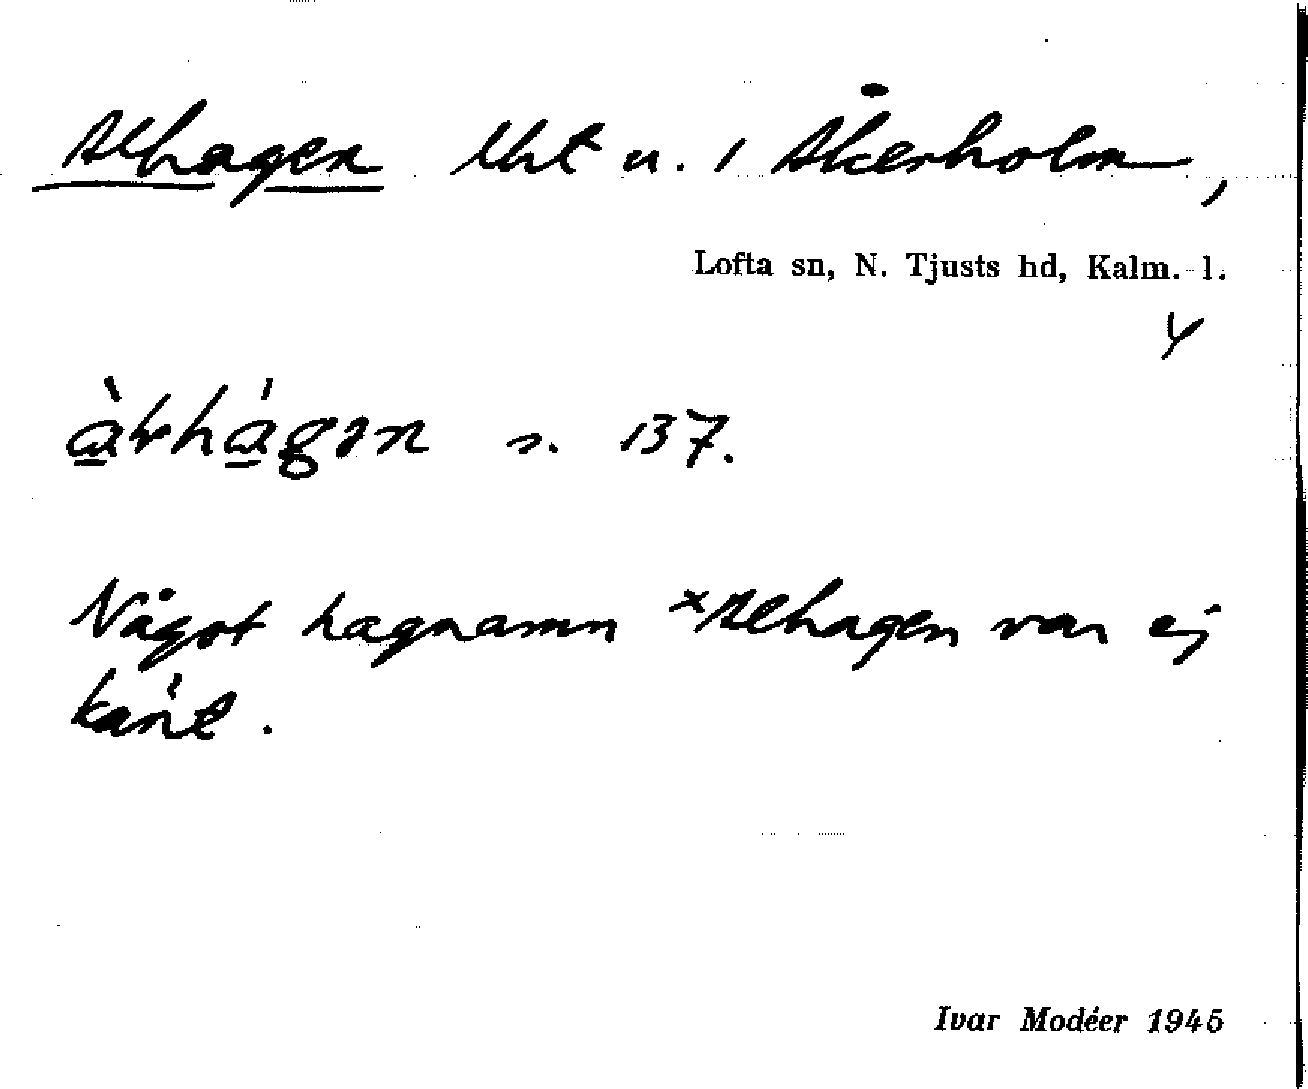 Alhagen lht u. 1 Åkerholm,
Lofta sn, N. Tjusts hd, Kalm. l.
s. 137.
Något hagnamn ×Alhagen var ej
känt.
Ivar Modéer 1945